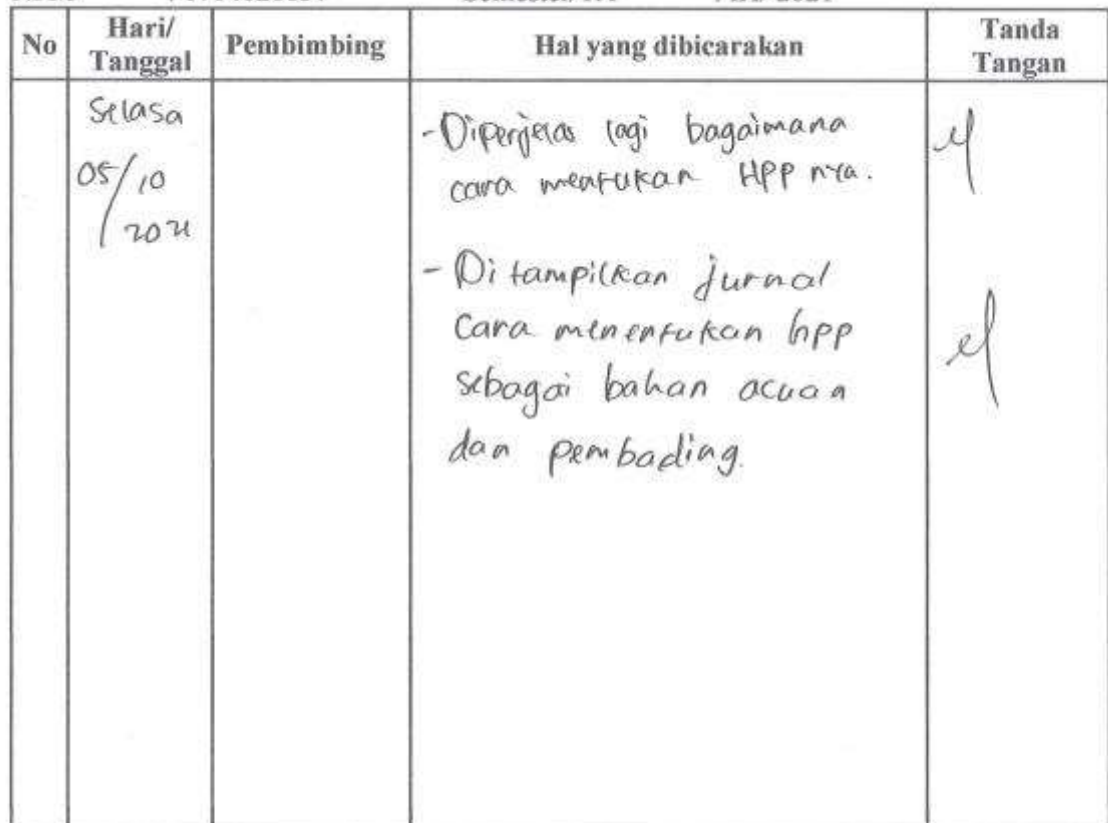 No
Hari/
Tanggal
Pembimbing
Hal yang dibicarakan
Tanda
Tangan
Selasa
05/10
2021
-Diperjelas lagi bagaimana
cara mentukan HPP nya.
- Di tampilkan jurnal
Cara menentukan hpp
sebagai bahan acuan
dan pembading.